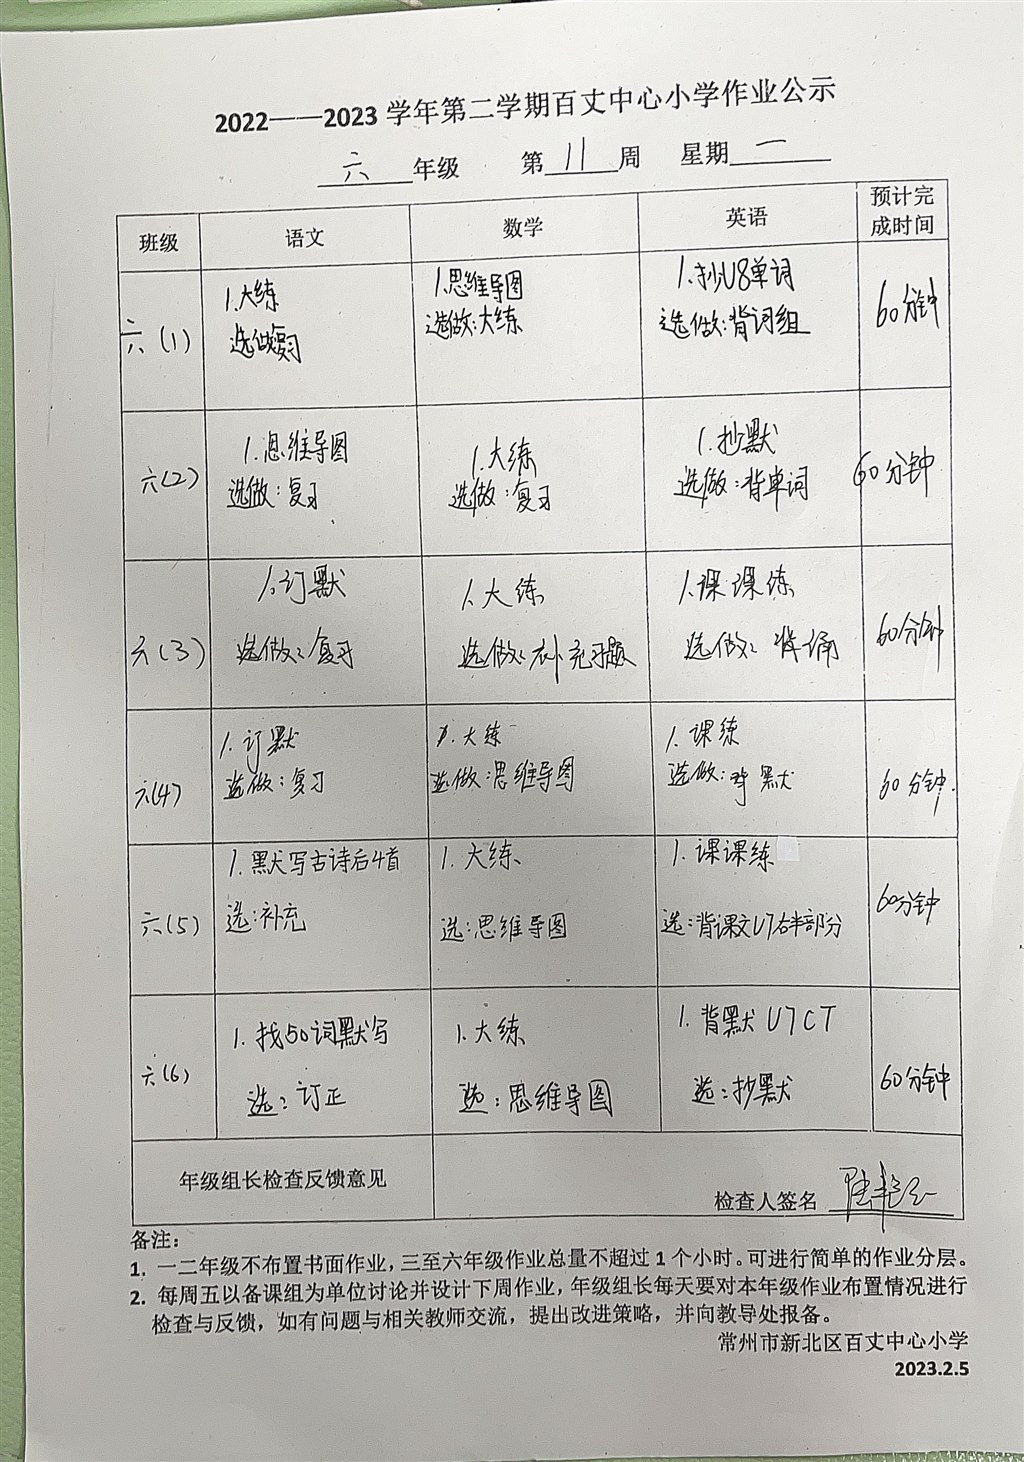 2022——2023 学年第二学期百丈中心小学作业公示
六 年级 第 11 周 星期 一
班级 语文 数学 英语 预计完成时间
六(1)
1.大练
选做复习
1.思维导图
选做:大练
1.抄U8单词
选做:背词组
60分钟
六(2)
1.思维导图
选做:复习
1.大练
选做:复习
1.抄默
选做:背单词
60分钟
六(3)
1.订默
选做:复习
1.大练
选做:补充习题
1.课课练
选做:背诵
60分钟
六(4)
1.订默
选做:复习
1.大练
选做:思维导图
1.课练
选做: 默
60分钟.
六(5)
1.默写古诗后4首
选:补充
1.大练
选:思维导图
1.课课练
选:背课文U7右半部分
60分钟
六(6)
1.找50词默写
选:订正
1.大练
选:思维导图
1.背默U7CT
选:抄默
60分钟
年级组长检查反馈意见
检查人签名
备注:
1. 一二年级不布置书面作业,三至六年级作业总量不超过 1 个小时。可进行简单的作业分层。
2. 每周五以备课组为单位讨论并设计下周作业,年级组长每天要对本年级作业布置情况进行
检查与反馈,如有问题与相关教师交流,提出改进策略,并向教导处报备。
常州市新北区百丈中心小学
2023.2.5